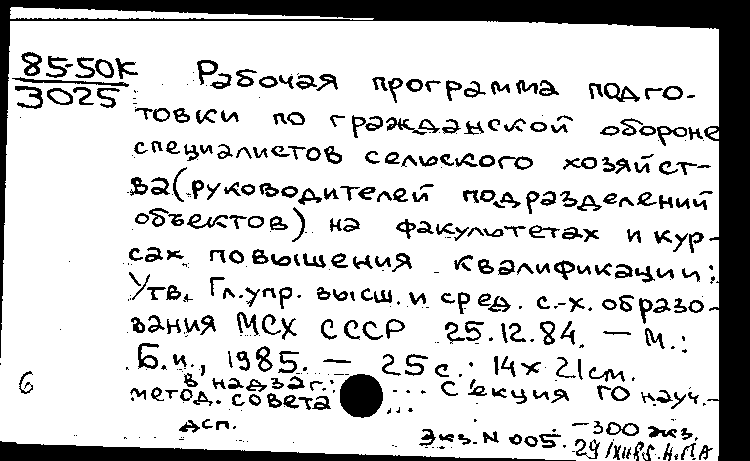 85-50К
3025
Рабочая программа подго-
товки по гражданской обороне
специалистов сельского хозяйст-
ва (руководителей подразделений
объектов) на факультетах и кур-
сах повышения квалификации:
Утв. Гл. упр. высш. и сред. с.-х. образо-
вания МСХ СССР 25.12.84. — М.:
Б.и., 1985. — 25 с.: 14 х 21 см.
В надзаг.: ... Секция ГО науч.-
метод. совета ...
6
дсп. — 300 экз.
Экз. N 005.